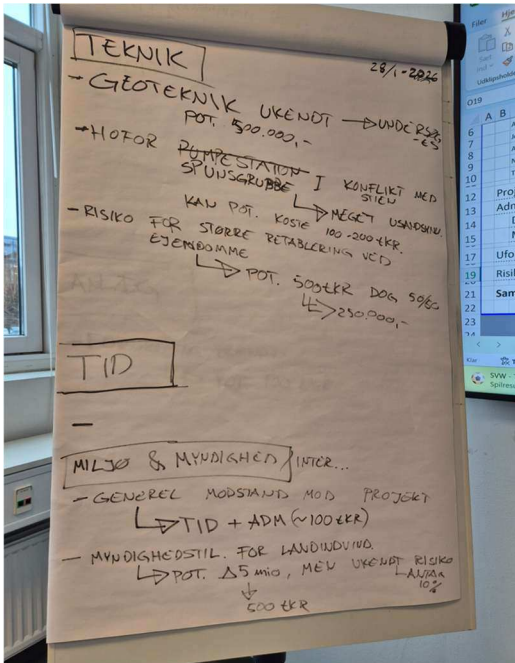 TEKNIK
28/1-2026
- GEOTEKNIK UKENDT → UNDERSØG
POT. 500.000,-
- HOFOR PUMPESTATION I KONFLIKT MED
SPUNSGRUBBE STIEN
↳ MEGET USANDSYN.
KAN POT. KOSTE 100-200 tKR.
- RISIKO FOR STØRRE RETABLERING VED
EJENDOMME
↳ POT. 500tKR DOG 50/50
↳ 250.000,-
TID
-
MILJØ & MYNDIGHED/INTER...
- GENEREL MODSTAND MOD PROJEKT
↳ TID + ADM (~100tKR)
- MYNDIGHEDSTIL. FOR LANDINDVIND.
↳ POT. Δ5 mio, MEN UKENDT RISIKO
↳ ANTAG
10%
↓
500 tKR
Filer Hje
Sæt
ind
Udklipsholde
O19
A B
6
7
8
9
10
12 Proj
13 Adm
14
15
17 Ufo
19 Risi
21 Sam
22
23
24
Klar
SVW -
Spilres